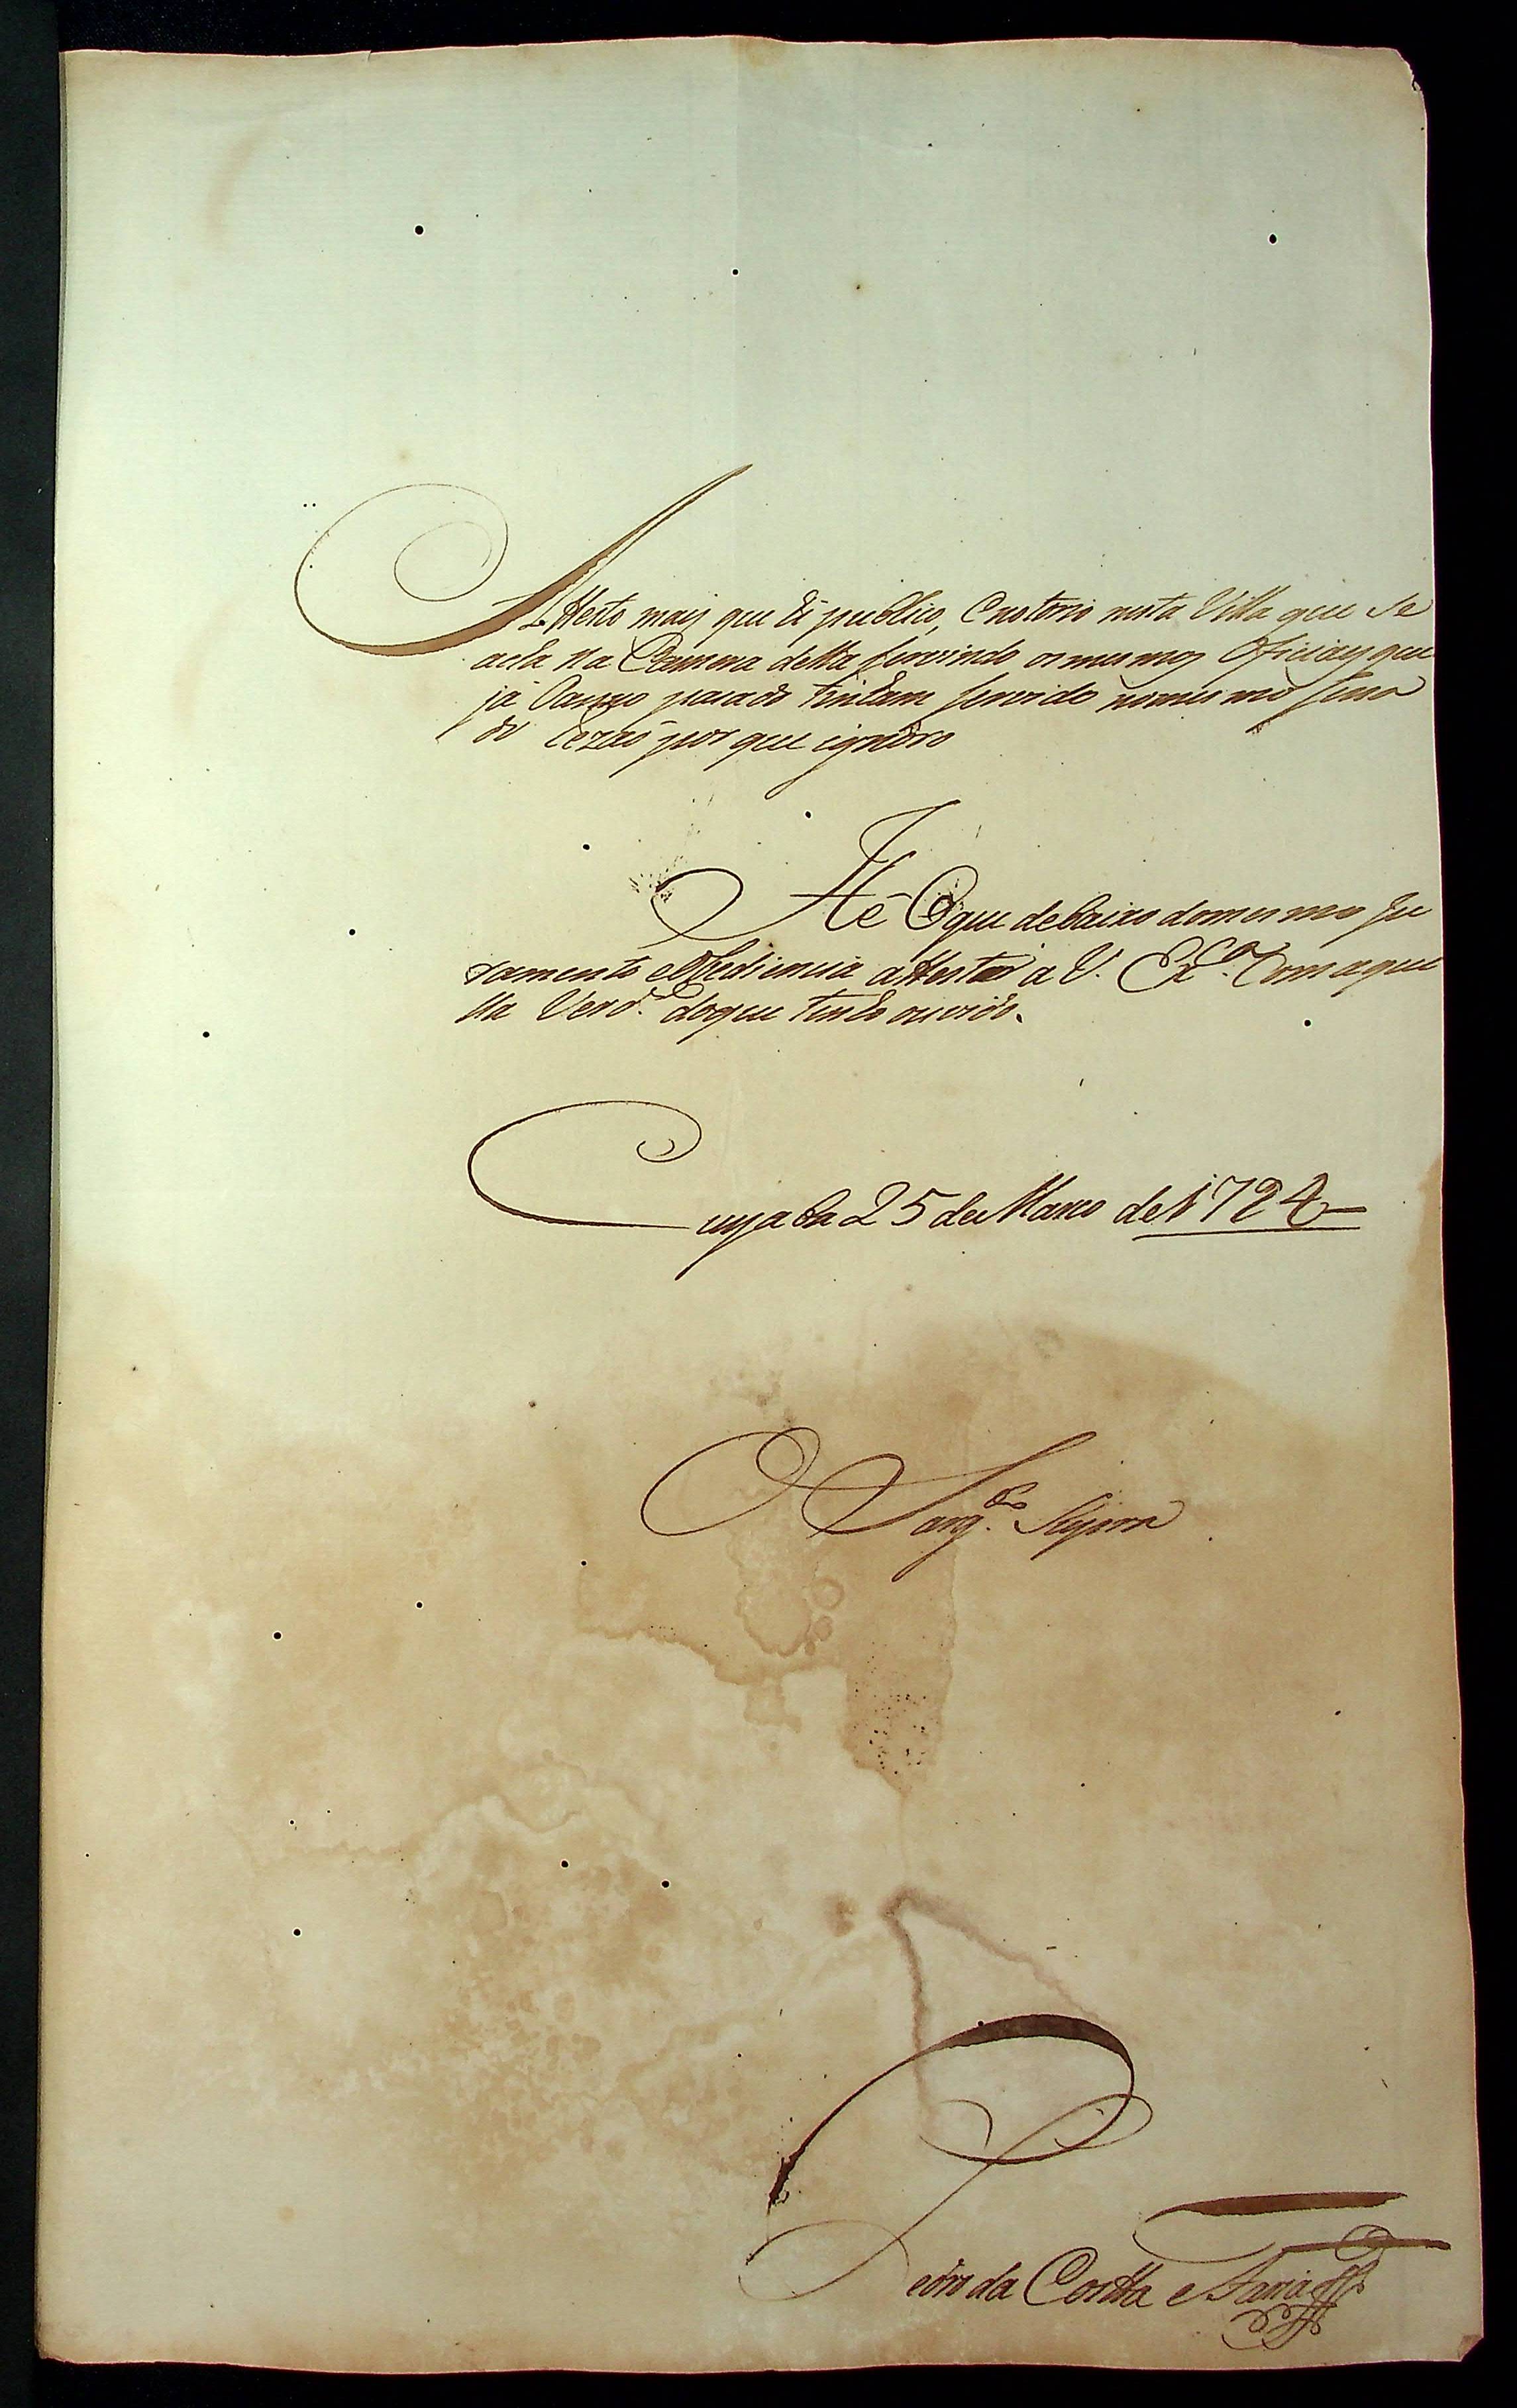 Attesto mays que hé publico, e notorio nesta Villa que se
acha na Camera della servindo os mesmos Oficiays que
já o anno pasado tinham servido no mesmo sena
do rezaõ por que ignóro
Hé o que debaixo do mesmo ju
ramento e obediencia attesto a V. Ex.ca com aque
lla Verd.e do que tenho ouvido.
Cuyaba 25 de Marco de 1724
O Sarg.to Mayor
Pedro da Costta e Faria